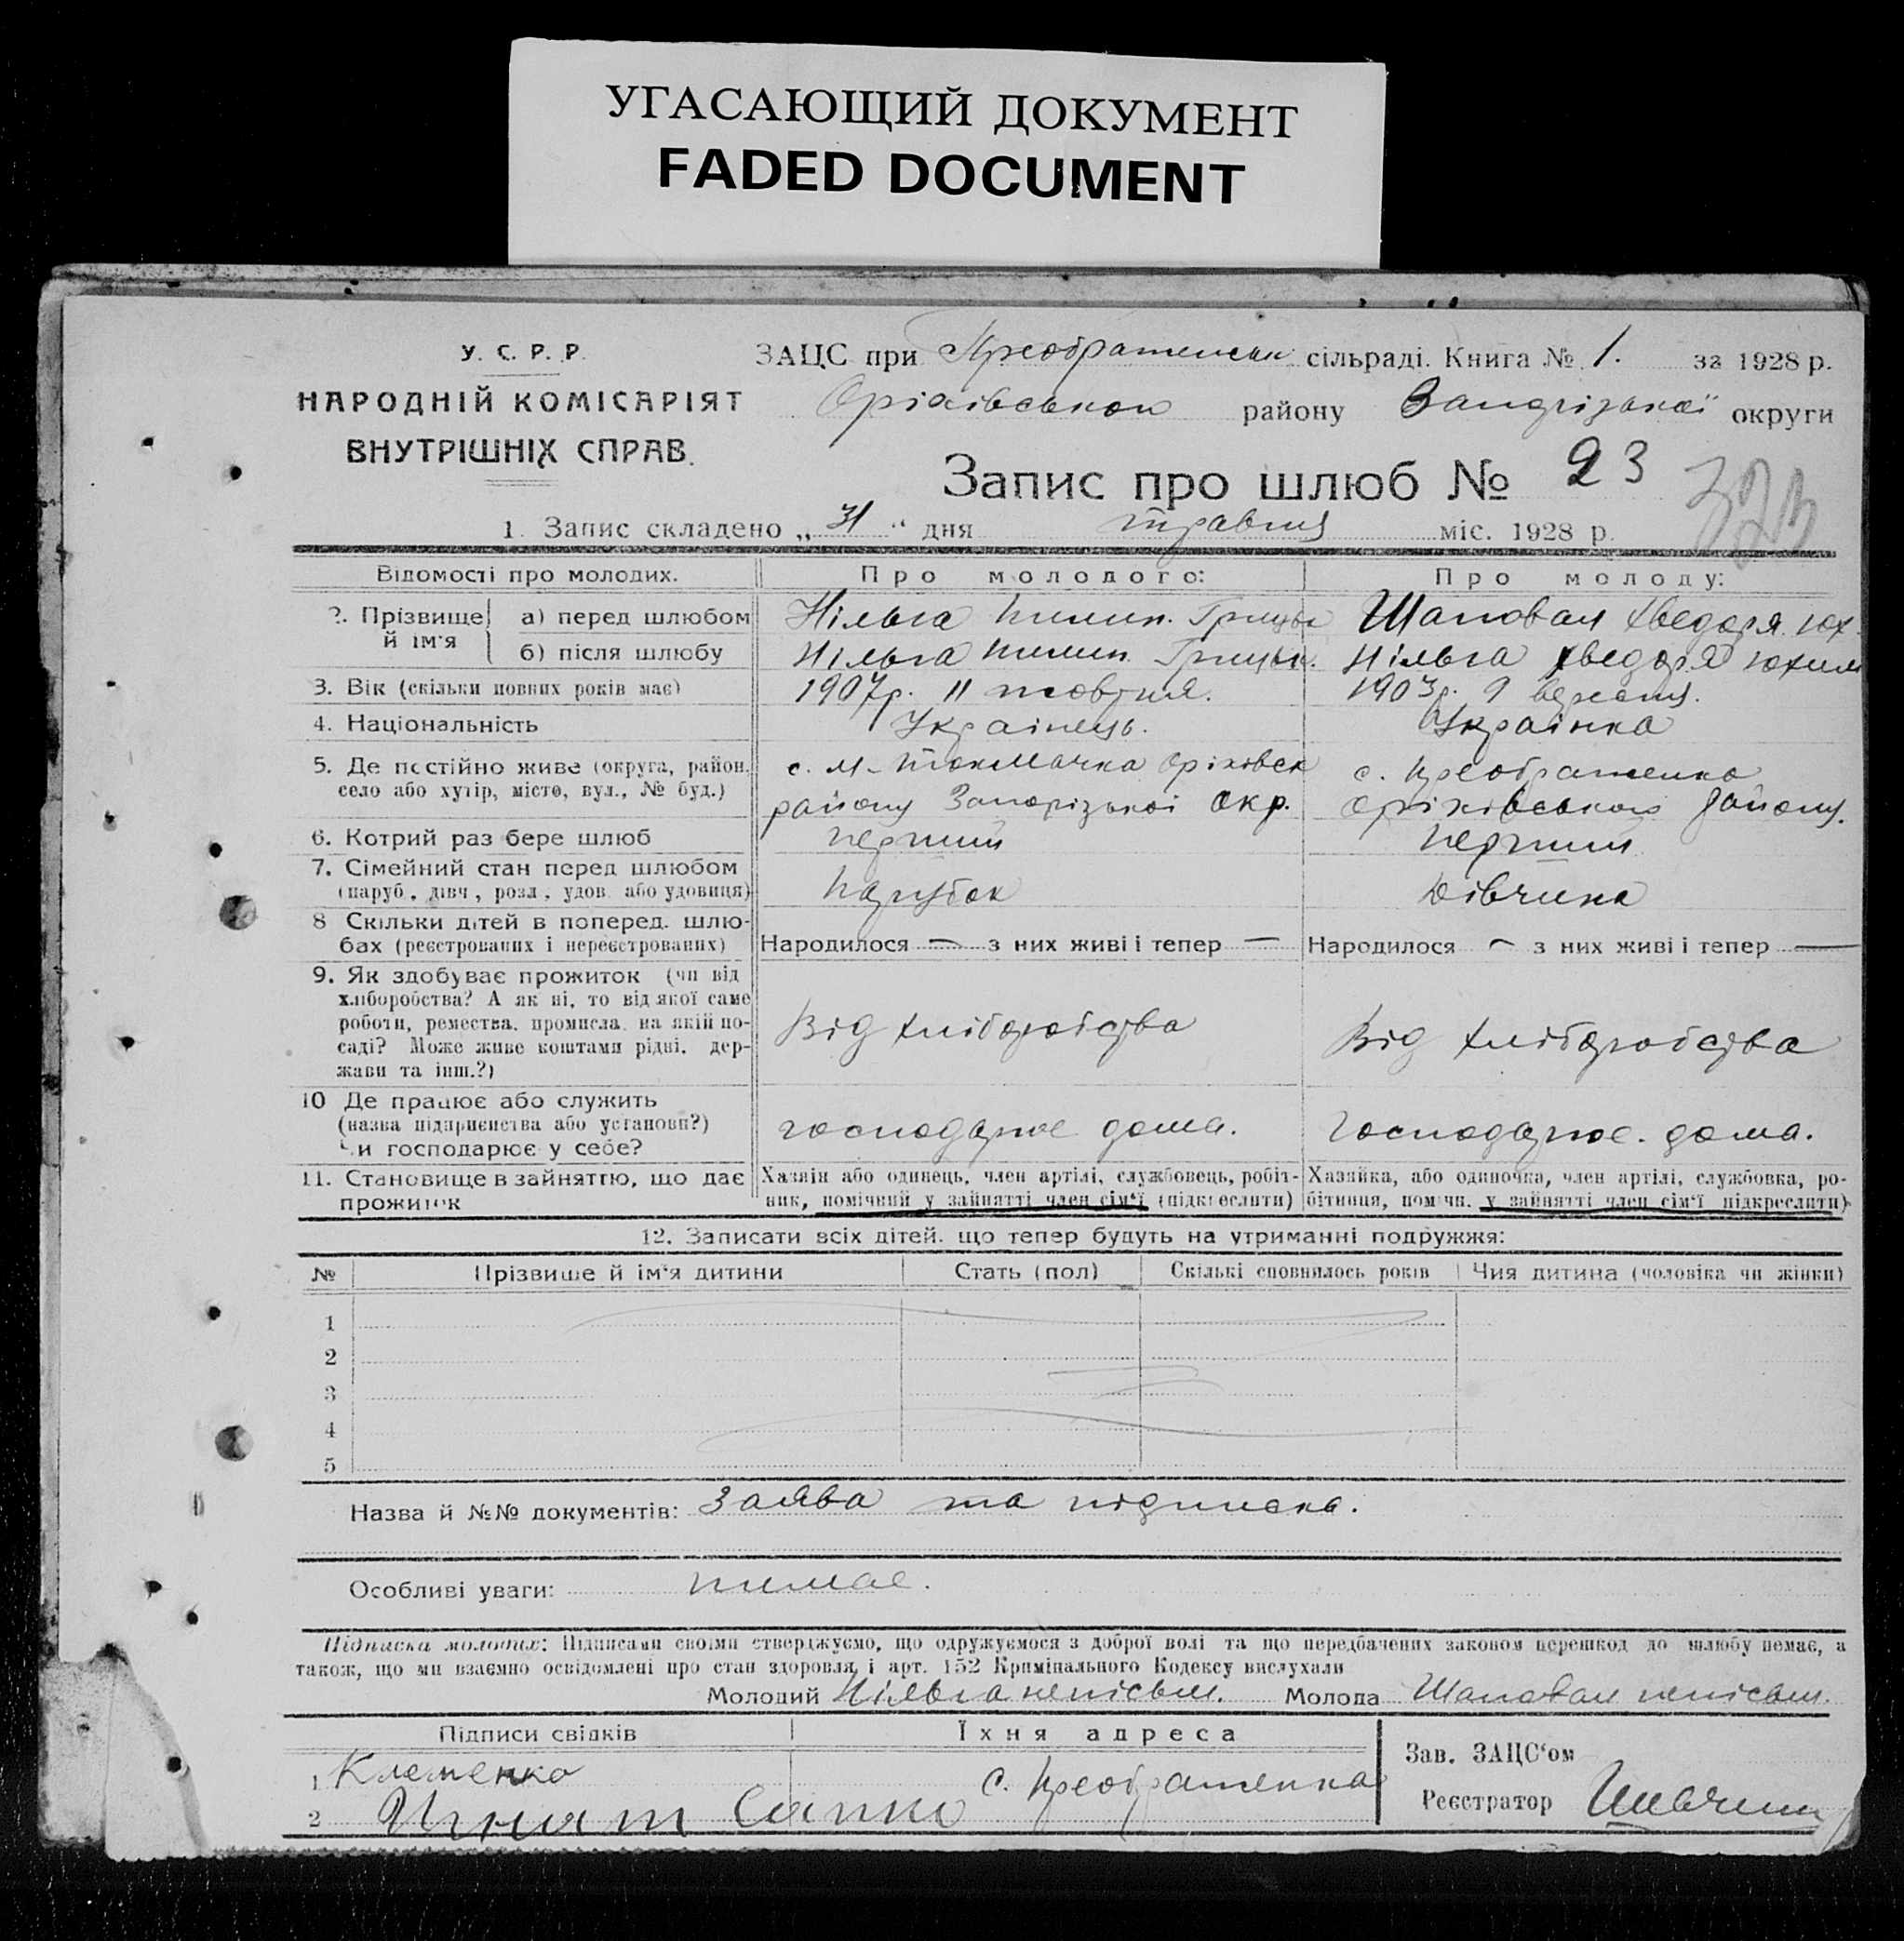 УГАСАЮЩИЙ ДОКУМЕНТ
FADED DOCUMENT
У. С. Р. Р.
НАРОДНІЙ КОМІСАРІЯТ
ВНУТРІШНІХ СПРАВ.
ЗАЦС при Преображенськ сільраді. Книга № 1. за 1928 р.
Оріхівського району Запорізької округи
Запис про шлюб № 23
323
1. Запис складено „31“ дня травня міс. 1928 р.
Відомості про молодих. Про молодого: Про молоду:
2. Прізвище й ім'я а) перед шлюбом Нільга Пилип. Грицьк Шаповал Хведоря Юх.
б) після шлюбу Нільга Пилип. Грицьк. Нільга Хведоря Юхим
3. Вік (скільки повних років має) 1907р. 11 жовтня. 1903р. 9 вересня.
4. Національність Українець. Українка
5. Де постійно живе (округа, район, с. М-Токмачка Оріхівськ с. Преображенка
село або хутір, місто, вул., № буд.) району Запорізької Окр. Оріхівського району.
6. Котрий раз бере шлюб перший перший
7. Сімейний стан перед шлюбом
(паруб., дівч., розл., удов. або удовиця) парубок дівчина
8 Скільки дітей в поперед. шлю-
бах (реєстрованих і нереєстрованих) Народилося — з них живі і тепер — Народилося — з них живі і тепер —
9. Як здобуває прожиток (чи від
хліборобства? А як ні, то від якої саме
роботи, ремества, промисла, на якій по- Від хліборобства Від хліборобства
саді? Може живе коштами рідні, дер-
жави та інш.?)
10 Де працює або служить
(назва підприємства або установи?) господарює дома. Господарює. дома.
Чи господарює у себе?
11. Становище в зайняттю, що дає Хазяїн або одинець, член артілі, службовець, робіт- Хазяйка, або одиночка, член артілі, службовка, ро-
прожиток ник, помічний у зайнятті член сім'ї (підкреслити) бітниця, поміч. у зайнятті член сім'ї підкреслити)
12. Записати всіх дітей, що тепер будуть на утриманні подружжя:
№ Прізвище й ім'я дитини Стать (пол) Скількі сповнилось років Чия дитина (чоловіка чи жінки)
1
2
3
4
5
Назва й №№ документів: Заява та підписка.
Особливі уваги: немає.
Підписка молодих: Підписами своїми стверджуємо, що одружуємося з доброї волі та що передбачених законом перешкод до шлюбу немає, а
також, що ми взаємно освідомлені про стан здоровля, і арт. 152 Кримінального Кодексу вислухали
Молодий Нільга непісьм. Молода Шаповал непісьм.
Підписи свідків Їхня адреса
Зав. ЗАЦС'ом
1 Клеменко с. Преображенка
Реєстратор
2 Игнат